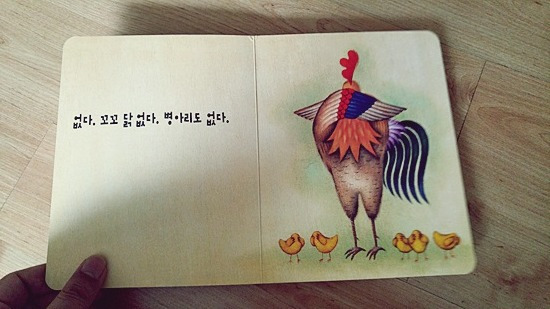 없다. 꼬꼬 닭 없다. 병아리도 없다.